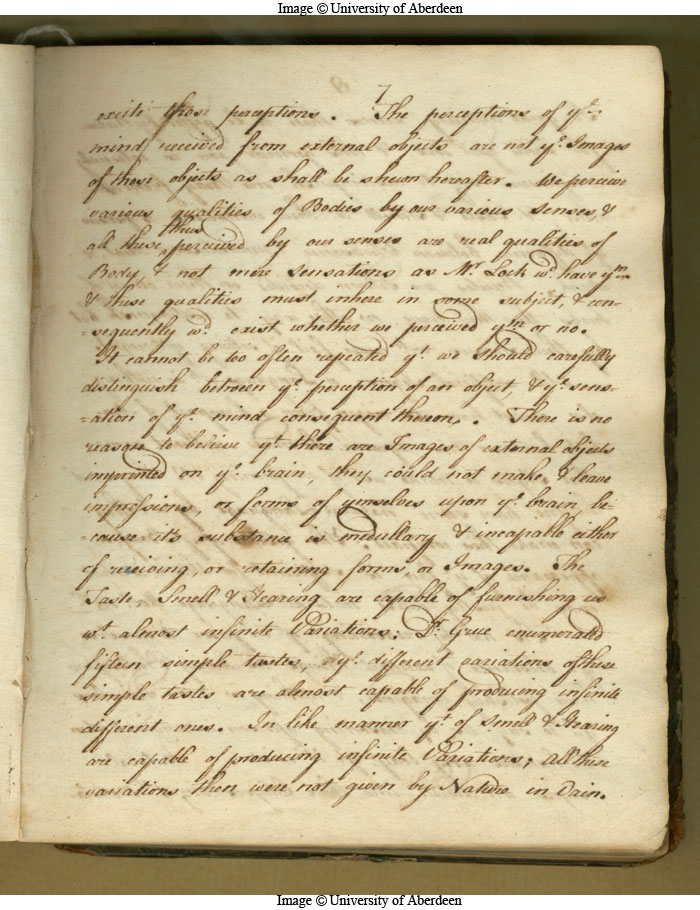 Image © University of Aberdeen
7
excite those perceptions. The perceptions of yᵉ
mind received from external objects are not yᵉ Images
of these objects as shall be shewn hereafter. We perceive
various qualities of Bodies by our various senses, &
all these thus perceived by our senses are real qualities of
Body, & not mere sensations as Mʳ Lock wᵈ have yᵐ
& these qualities must inhere in some subject, & con-
-sequently wᵈ exist whether we perceived yᵐ or no.
It cannot be too often repeated yᵗ we should carefully
distinguish between yᵉ perception of an object, & yᵉ sens-
-ation of yᵉ mind consequent thereon. There is no
reason to believe yᵗ there are Images of external objects
imprinted on yᵉ brain, they could not make & leave
impressions, or forms of ymselves upon yᵉ brain, be-
-cause it's substance is medullary & incapable either
of receiving, or retaining forms, or Images. The
Taste, Smell & Hearing are capable of furnishing us
wᵗ almost infinite Variations: Dʳ Grue enumerated
fifteen simple tastes, yᵉ different variations of these
simple tastes are almost capable of producing infinite
different ones. In like manner yᵗ of Smell & Hearing
are capable of producing infinite Variations; all these
variations then were not given by Nature in Vain.
Image © University of Aberdeen